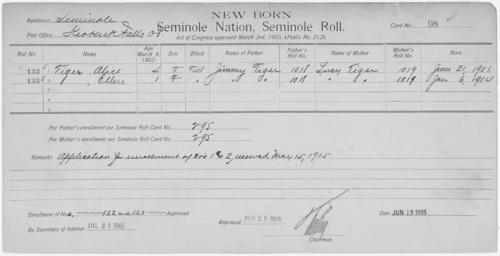 NEW BORN
Residence Seminole
Seminole Nation, Seminole Roll.
Card No. 98
Post Office. Falls
Act of Congress approved March 3rd, 1905, (Public No. 212).
Roll No. Name Age March 4, 1905. Sex Blood Name of Father Father's Roll No. Name of Mother Mother's Roll No. Born
122 Tiger, Alice 4 F Full Jimmy Tiger 1018 Lucy Tiger 1019 June 21, 1901
123 " , Ellen 1 F " " " 1018 " " 1019 Jan 6, 1904
For Father's enrollment see Seminole Roll Card No. 295
For Mother's enrollment see Seminole Roll Card No. 295
Remarks Application for enrollment of Nos 1 & 2 received May 15, 1905
Enrollment of Nos. 122 and 123 Approved
Approved 1905
Date JUN 19 1905
By Secretary of Interior 1905
Chairman.